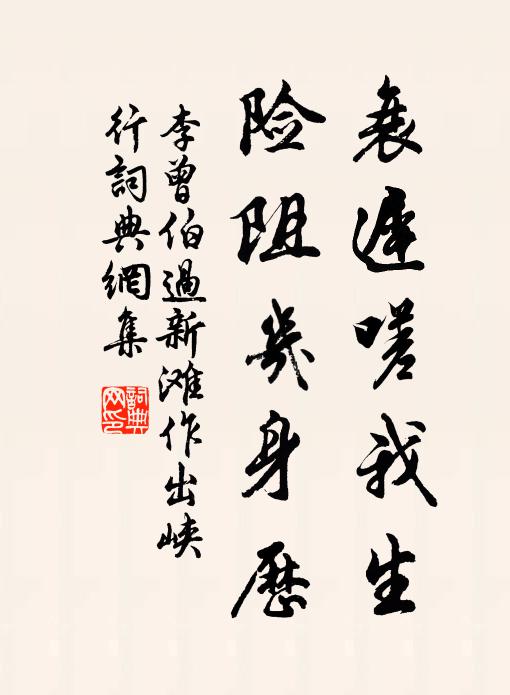 衰遲嗟我生
险阻幾身歷
李曾伯過新滩作出峡
行詞典網集
詞典
网印